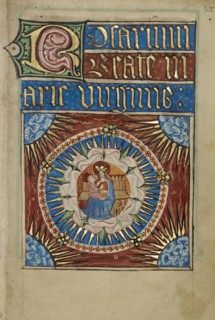 Rosarium
Beate m
arie virginis :